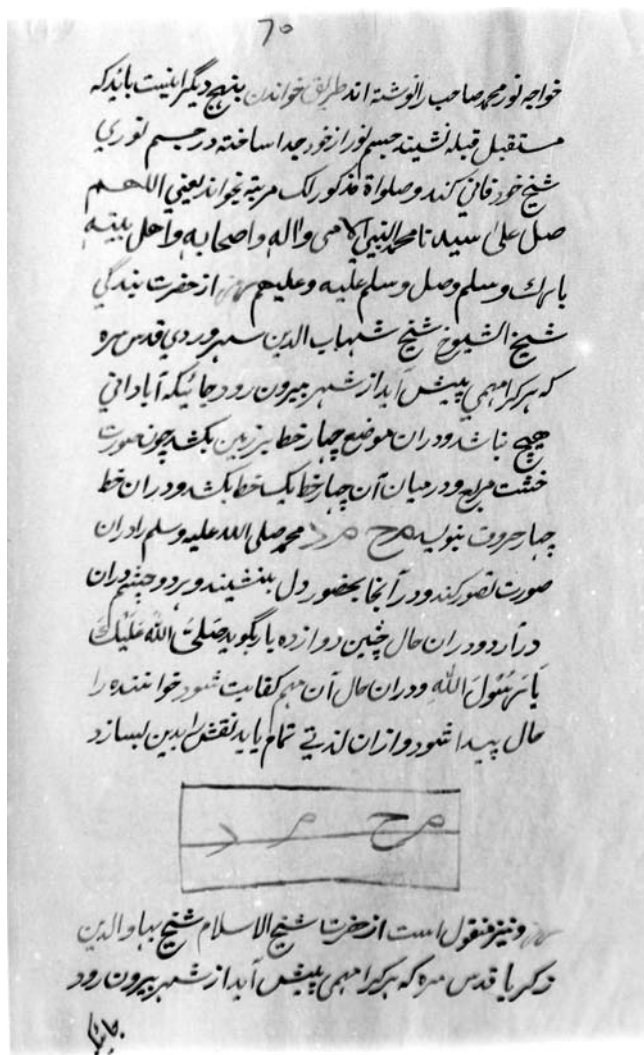 ۷۰
خواجه نور محمد صاحب را نوشته اند طریق خواندن بنهج دیگر اینست باید که
مستقبل قبله نشیند جسم نور از خود جدا ساخته در جسم نوری
شیخ خود فانی کند و صلواة مذکور لک مرتبه بخواند یعنی اللهم
صل علی سیدنا محمد النبی الامی واله واصحابه واهل بیته
بارك وسلم وصل وسلم علیه وعلیهم از حضرت بندگی
شیخ الشیوخ شیخ شهاب الدین سهروردی قدس سره
که هر کرا مهمی پیش آید از شهر بیرون رود جائیکه آبادانی
هیچ نباشد و دران موضع چهار خط بر زمین بکشد چون صورت
خشت مربع و درمیان آن چهار خط یک خط بکشد و دران خط
چهار حروف بنویسد م ح م د محمد صلی الله علیه وسلم را دران
صورت تصور کند و در آنجا بحضور دل بنشیند و هر دو چشم دران
درآرد و دران حال چنین دوازده بار بگوید صَلَّی اللهُ عَلَیْكَ
یَا رَسُوْلَ اللهِ و دران حال آن مهم کفایت شود خواننده را
حال پیدا شود و ازان لذتی تمام یابد نقش را بدین بسازد
م ح م د
و نیز منقول است از حضرت شیخ الاسلام شیخ بهاوالدین
ذکریا قدس سره که هر کرا مهمی پیش آید از شهر بیرون رود